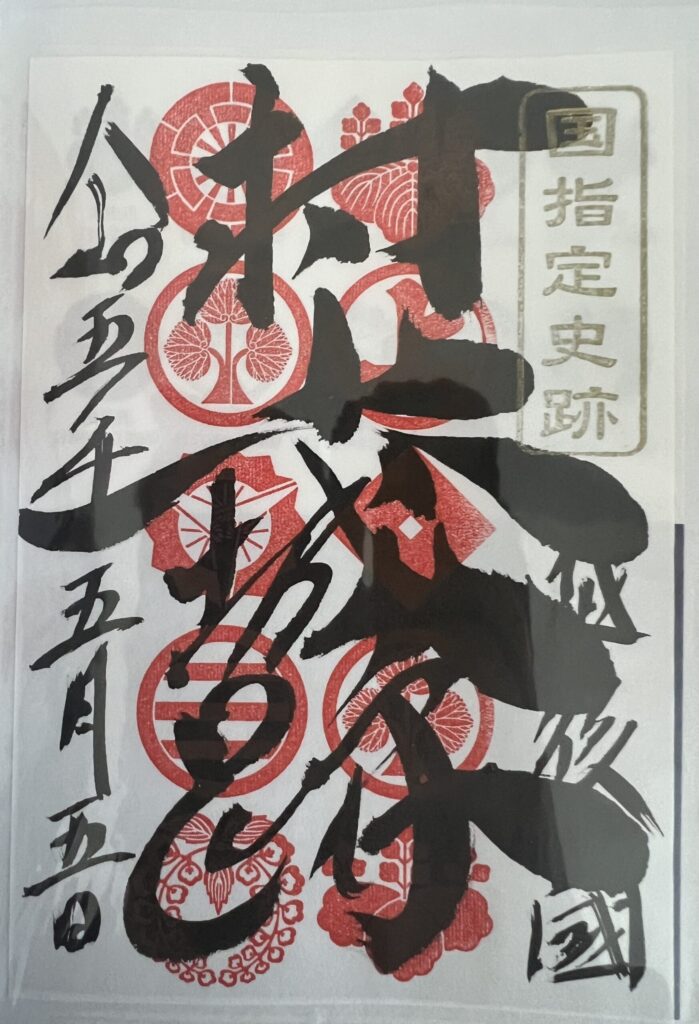 国指定史跡
越後國
村上城跡
令和五年
五月五日